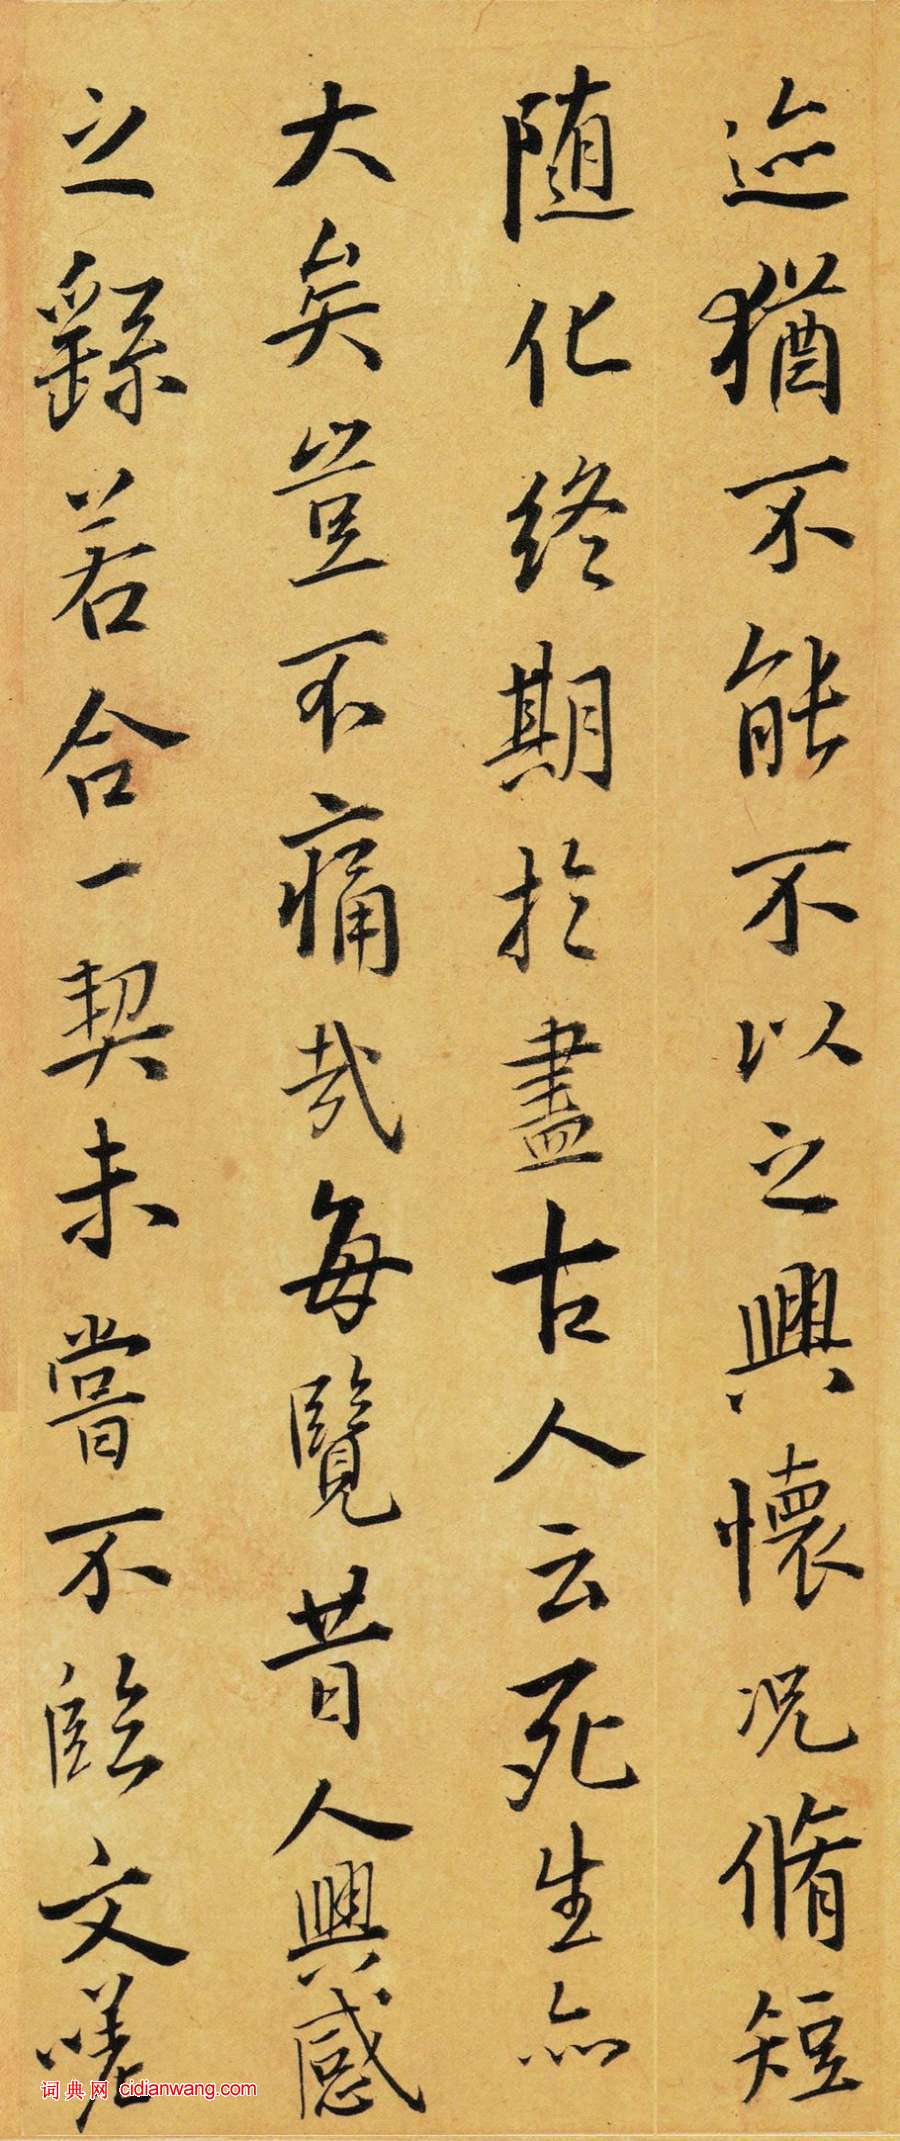 迹猶不能不以之興懷况脩短
随化終期於盡古人云死生亦
大矣豈不痛哉每覽昔人興感
之繇若合一契未嘗不臨文嗟
词典网 cidianwang.com